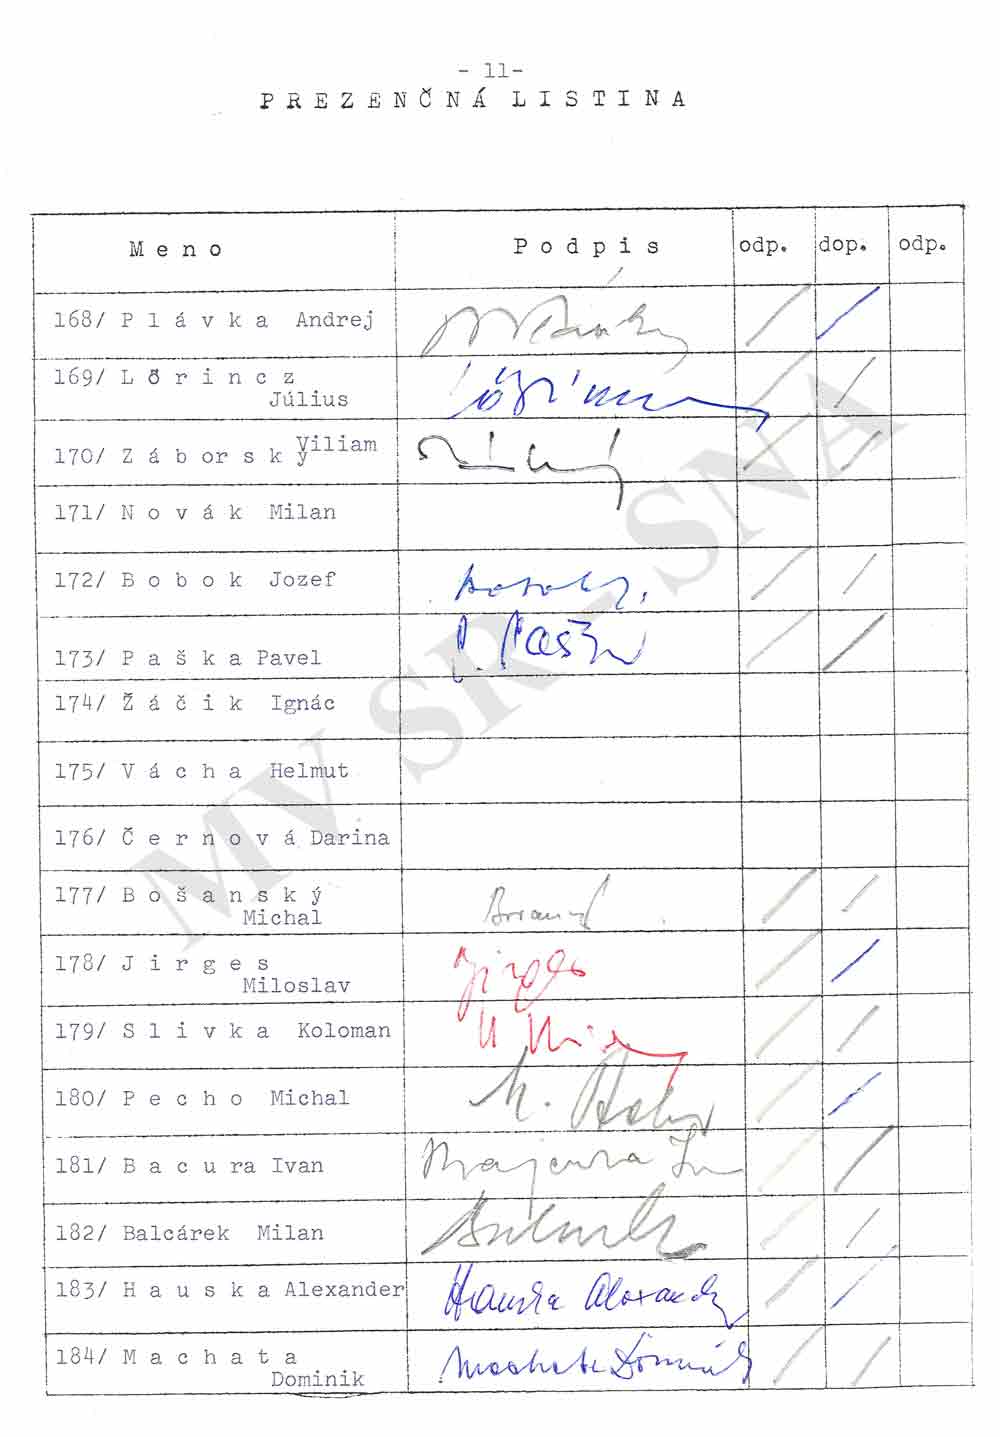 - 11-
P R E Z E N Č N Á L I S T I N A
M e n o P o d p i s odp. dop. odp.
168/ P l á v k a Andrej
169/ L ő r i n c z
Július
170/ Z á b o r s k ý Viliam
171/ N o v á k Milan
172/ B o b o k Jozef
173/ P a š k a Pavel
174/ Ž á č i k Ignác
175/ V á c h a Helmut
176/ Č e r n o v á Darina
177/ B o š a n s k ý
Michal
178/ J i r g e s
Miloslav
179/ S l i v k a Koloman
180/ P e c h o Michal
181/ B a c u r a Ivan
182/ Balcárek Milan
183/ H a u s k a Alexander Hauska Alexander
184/ M a c h a t a Machata Dominik
Dominik
MV SR - SNA